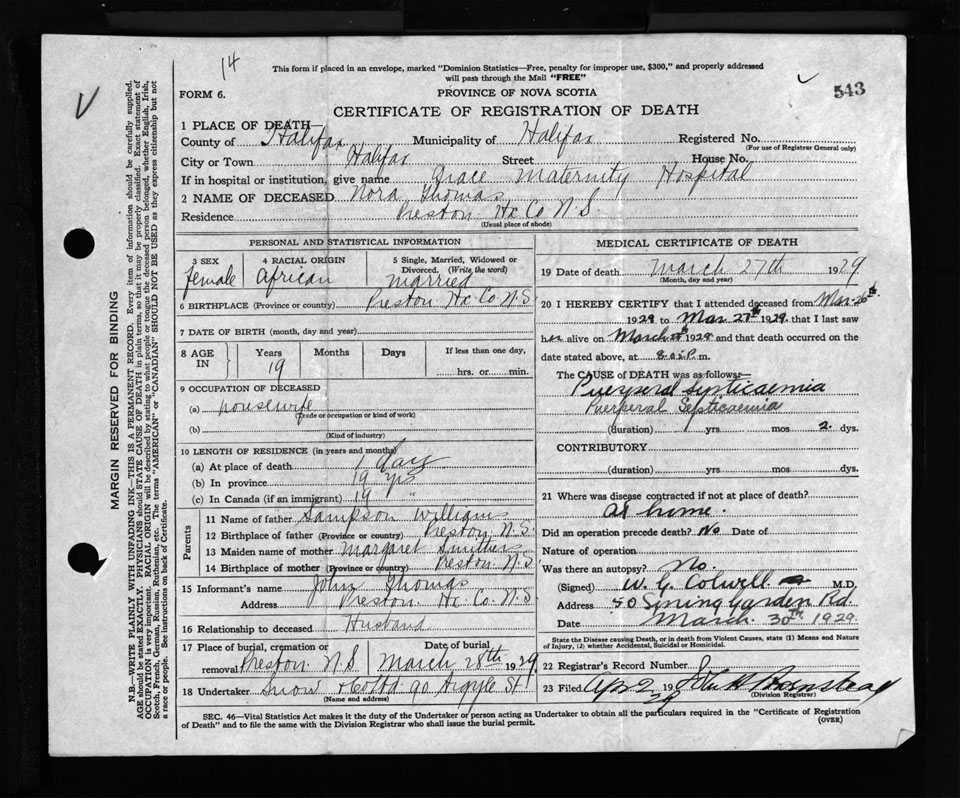 14
This form if placed in an envelope, marked "Dominion Statistics—Free, penalty for improper use, $300," and properly addressed
will pass through the Mail "FREE"
543
FORM 6.
PROVINCE OF NOVA SCOTIA
CERTIFICATE OF REGISTRATION OF DEATH
1 PLACE OF DEATH—
County of Halifax Municipality of Halifax Registered No.
(For use of Registrar General only)
City or Town Halifax Street House No.
If in hospital or institution, give name Grace Maternity Hospital
2 NAME OF DECEASED Nora Thomas
Residence Preston Hx Co N.S.
(Usual place of abode)
PERSONAL AND STATISTICAL INFORMATION
3 SEX 4 RACIAL ORIGIN 5 Single, Married, Widowed or
Divorced. (Write the word)
female African married
6 BIRTHPLACE (Province or country) Preston Hx Co N.S
7 DATE OF BIRTH (month, day and year)
8 AGE IN Years Months Days If less than one day,
19 hrs. or min.
9 OCCUPATION OF DECEASED
(a) housewife
(Trade or occupation or kind of work)
(b)
(Kind of industry)
10 LENGTH OF RESIDENCE (in years and months)
(a) At place of death 1 day
(b) In province 19 yrs
(c) In Canada (if an immigrant) 19 "
Parents
11 Name of father Sampson Williams
12 Birthplace of father (Province or country) Preston N.S.
13 Maiden name of mother Margaret
14 Birthplace of mother (Province or country) Preston N.S
15 Informant's name John Thomas
Address Preston Hx. Co. N.S
16 Relationship to deceased Husband
17 Place of burial, cremation or Date of burial
removal Preston N.S March 28th 1929
18 Undertaker Snow & Co Ltd 90 Argyle St
(Name and address)
MEDICAL CERTIFICATE OF DEATH
19 Date of death March 27th 1929
(Month, day and year)
20 I HEREBY CERTIFY that I attended deceased from Mar 26th
1929 to Mar 27th 1929 that I last saw
her alive on March 1929 and that death occurred on the
date stated above, at P.m.
The CAUSE of DEATH was as follows:—
Puerperal Septicaemia
Puerperal Septicaemia
(duration) yrs mos 2 dys.
CONTRIBUTORY.
(duration) yrs mos dys.
21 Where was disease contracted if not at place of death?
At home.
Did an operation precede death? No Date of
Nature of operation
Was there an autopsy? No.
(Signed) W. G. Colwell M.D.
Address 50 Spring Garden Rd
Date March 30th 1929.
State the Disease causing Death, or in death from Violent Causes, state (1) Means and Nature
of Injury, (2) whether Accidental, Suicidal or Homicidal.
22 Registrar's Record Number
23 Filed Apr 2 1929
(Division Registrar)
SEC. 46—Vital Statistics Act makes it the duty of the Undertaker or person acting as Undertaker to obtain all the particulars required in the "Certificate of Registration
of Death" and to file the same with the Division Registrar who shall issue the burial permit.
(OVER)
MARGIN RESERVED FOR BINDING
N.B.—WRITE PLAINLY WITH UNFADING INK—THIS IS A PERMANENT RECORD. Every item of information should be carefully supplied.
AGE should be stated EXACTLY. PHYSICIANS should STATE CAUSE OF DEATH in plain terms, so that it may be properly classified. Exact statement of
OCCUPATION is very important. RACIAL ORIGIN will be described by stating to what people or tongue the deceased person belonged, whether English, Irish,
Scotch, French, German, Russian, Ruthenian, etc. The terms "AMERICAN" or "CANADIAN" SHOULD NOT BE USED as they express citizenship but not
a race or people. See instructions on back of Certificate.